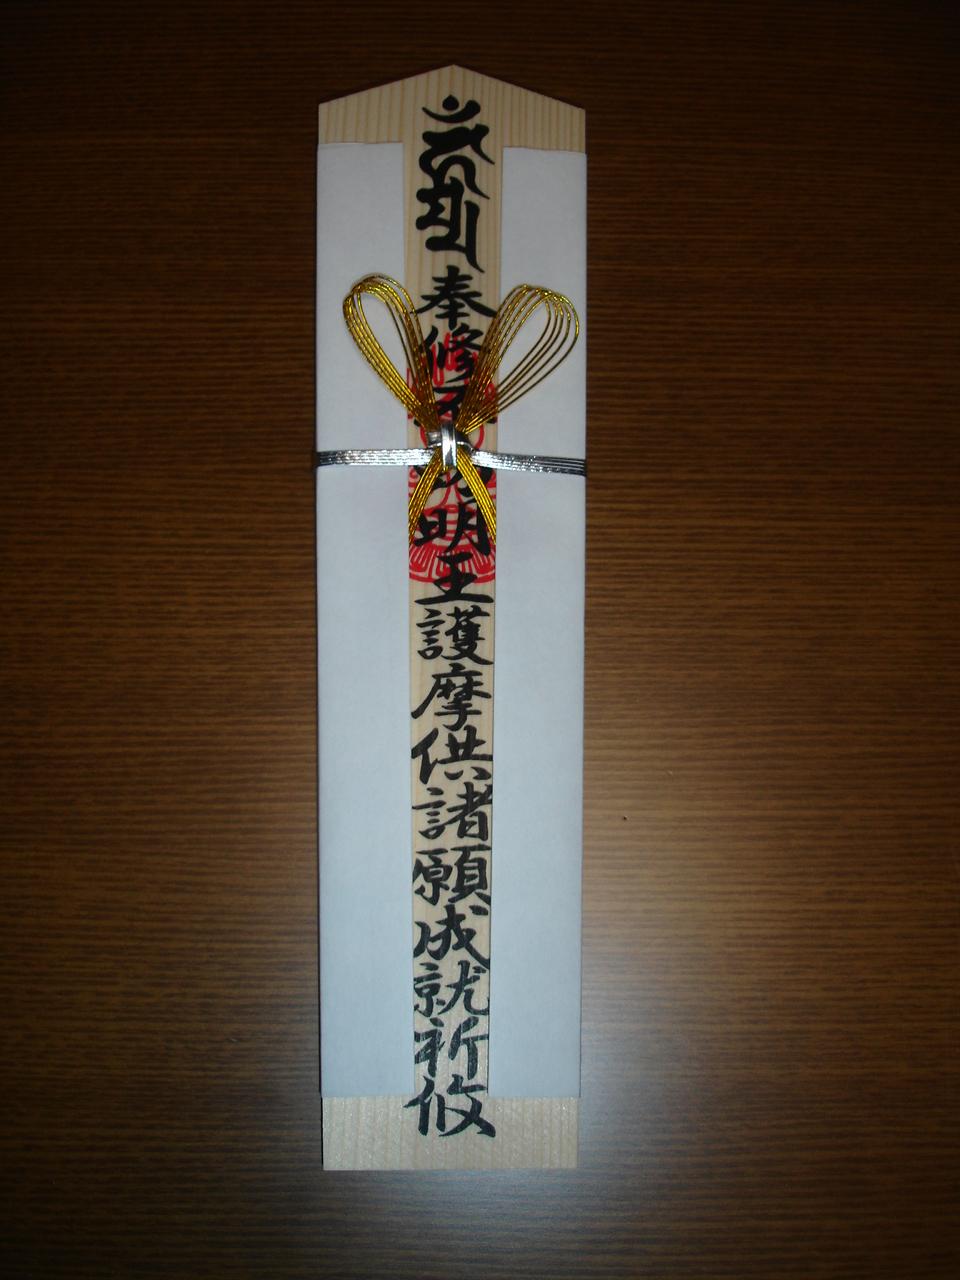 奉修不動明王護摩供諸願成就祈攸